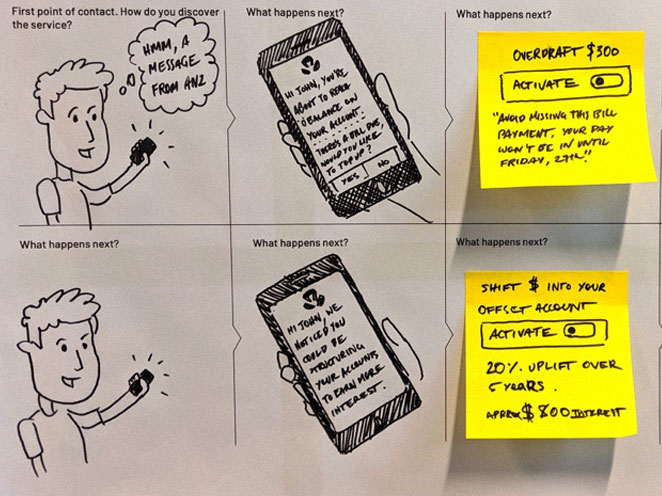 First point of contact. How do you discover
the service?
HMM, A
MESSAGE
FROM ANZ
What happens next?
HI JOHN, YOU'RE
ABOUT TO REACH
0 BALANCE ON
YOUR ACCOUNT.
THERE'S A BILL DUE
WOULD YOU LIKE
TO TOP UP?
YES NO
What happens next?
OVERDRAFT $300
ACTIVATE
"AVOID MISSING THIS BILL
PAYMENT. YOUR PAY
WON'T BE IN UNTIL
FRIDAY, 27TH."
What happens next?
What happens next?
HI JOHN, WE
NOTICED YOU
COULD BE
STRUCTURING
YOUR ACCOUNTS
TO EARN MORE
INTEREST.
What happens next?
SHIFT $ INTO YOUR
OFFSET ACCOUNT
ACTIVATE
20% UPLIFT OVER
5 YEARS.
APPROX $800 INTEREST